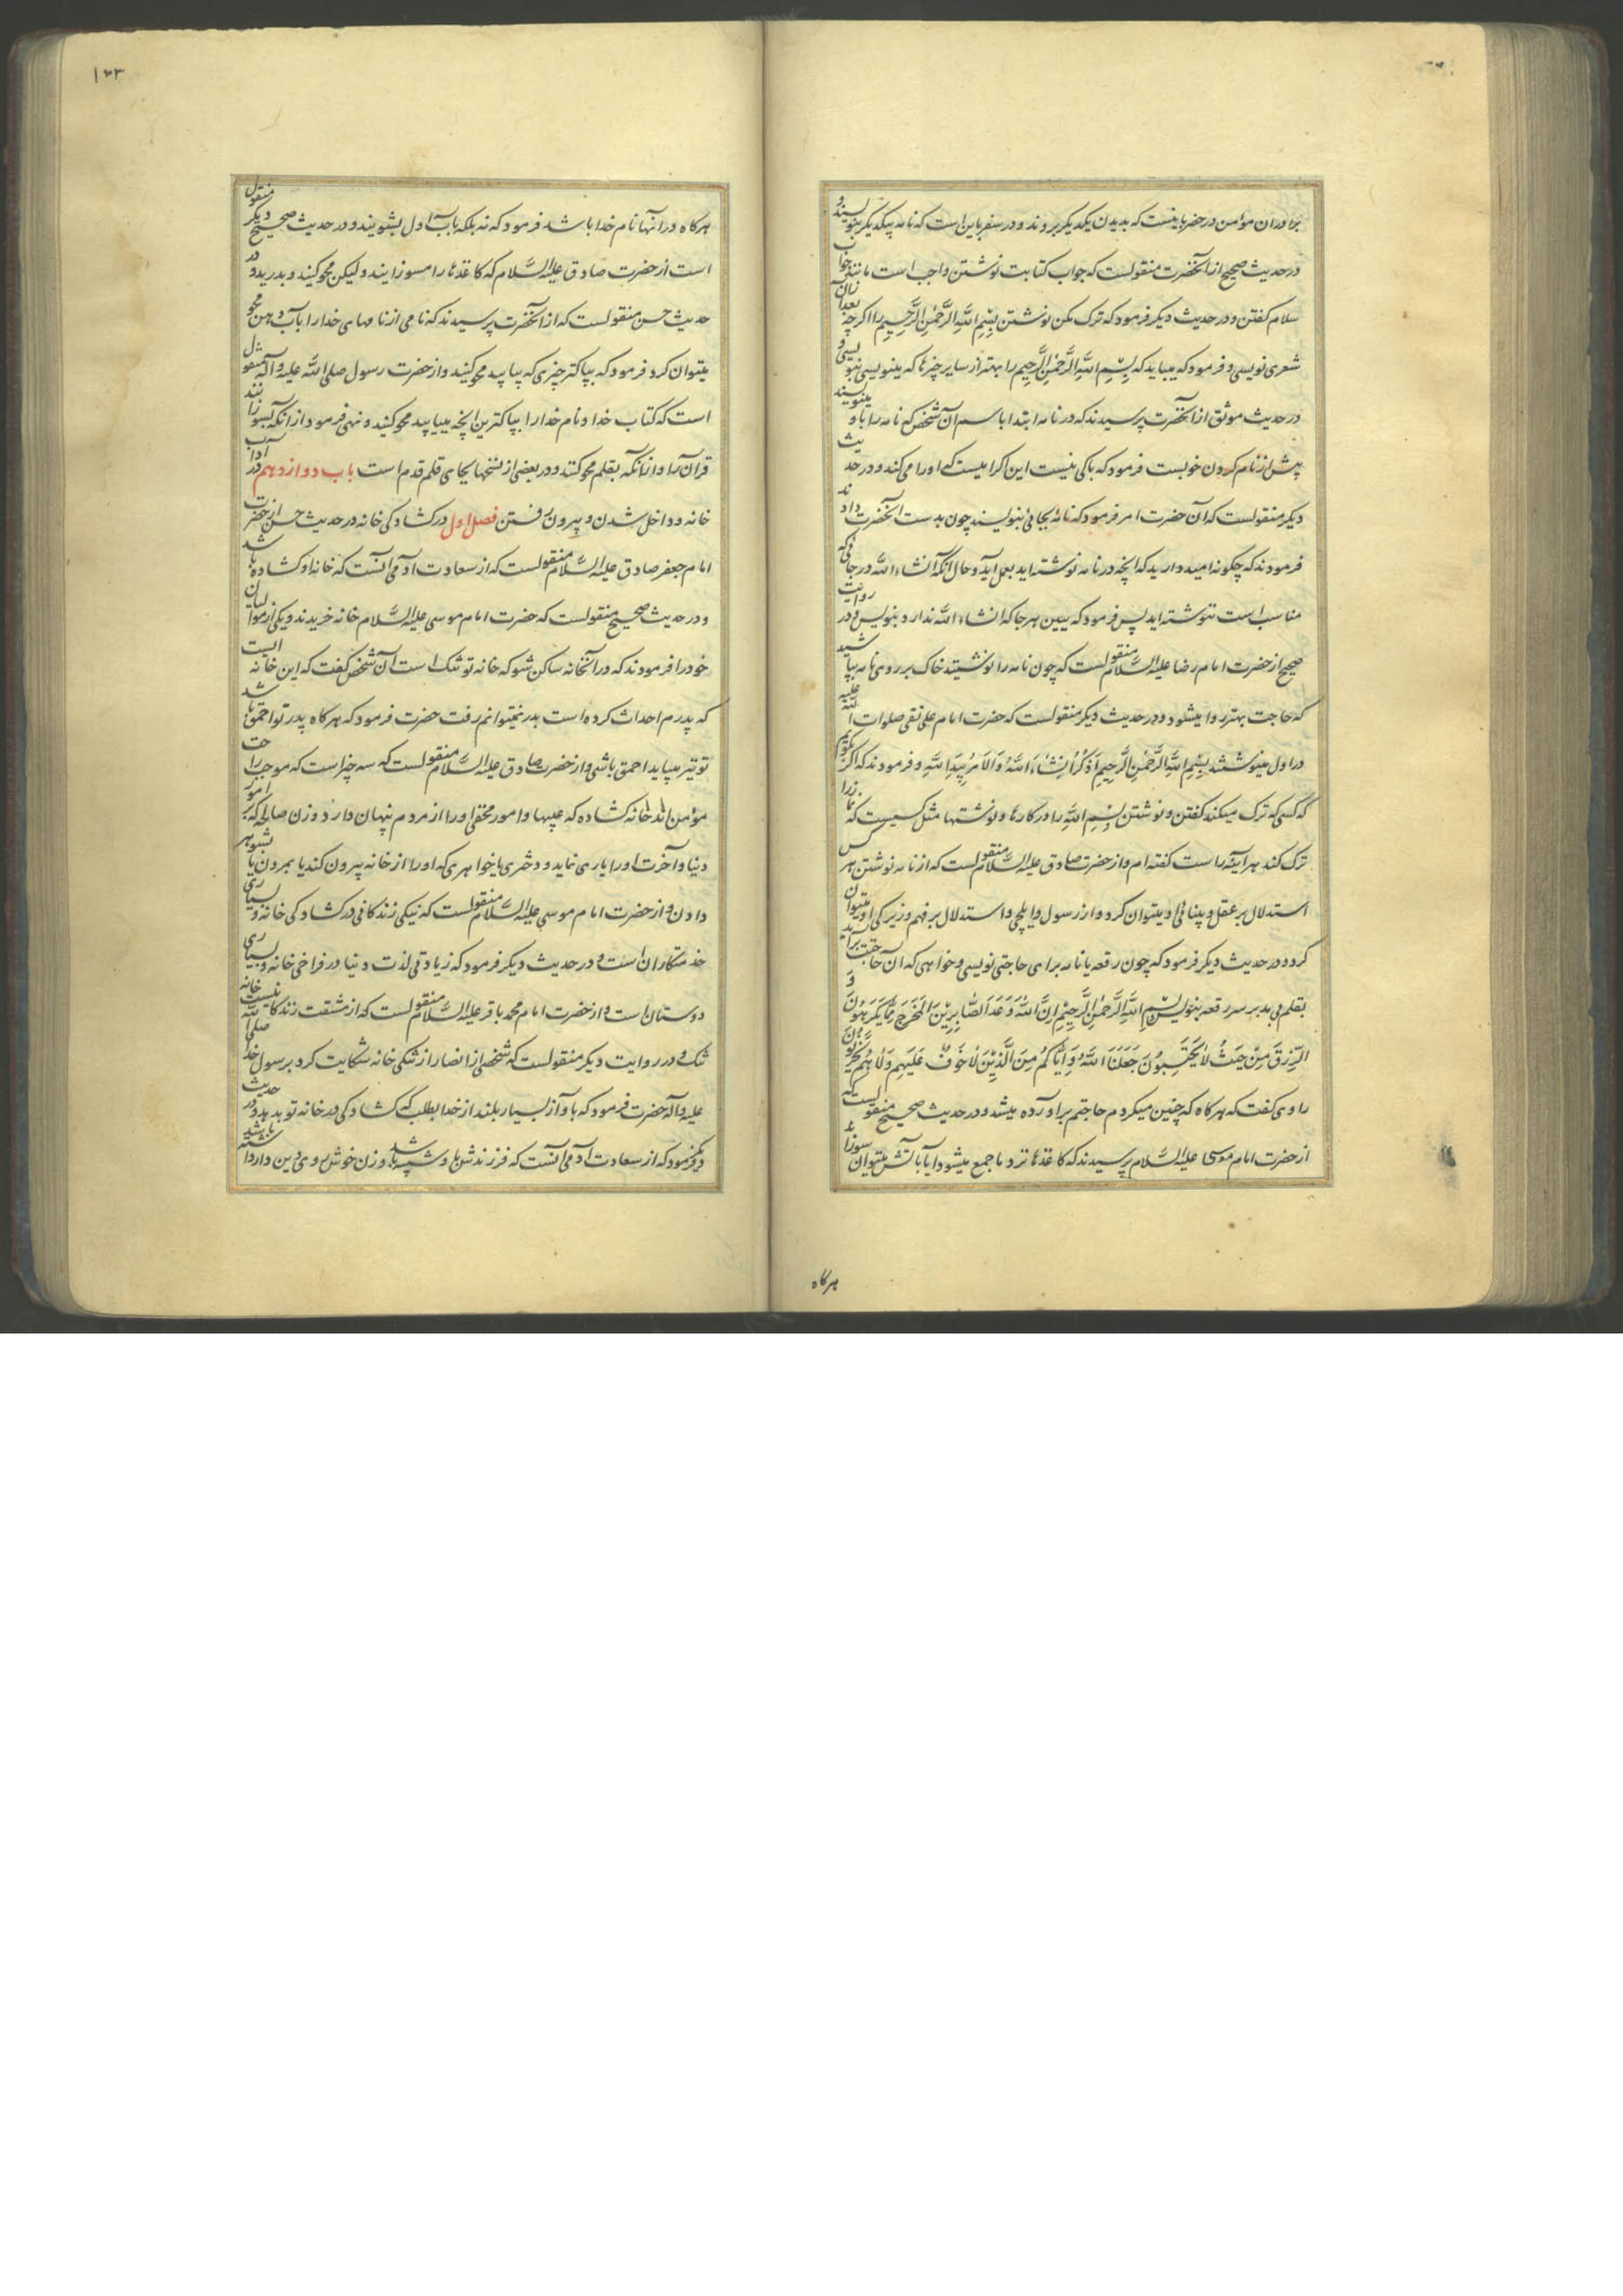 برادران مؤمن در حضر باینست که بدیدن یکدیگر بروند و در سفر باین است که نامه بیکدیگر بنویسند و
در حدیث صحیح از آنحضرت منقولست که جواب کتابت نوشتن واجب است مانند جواب
سلام گفتن و در حدیث دیگر فرمود که ترک مکن نوشتن بِسْمِ اللّهِ الرَّحْمٰنِ الرَّحِیمِ را اگرچه بعد از آن
شعری نویسی و فرمود که میباید که بِسْمِ اللّهِ الرَّحْمٰنِ الرَّحِیمِ را بهتر از سایر چیزها که مینویسی بنویسی و
در حدیث موثق از آنحضرت پرسیدند که در نامه ابتدا باسم آن شخص که نامه را باو مینویسند
پیش از نام کردن خوبست فرمود که باکی نیست این اکرامیست که او را می کند و در حدیث
دیگر منقولست که آن حضرت امر فرمود که نامه بجائی بنویسند چون بدست آنحضرت دادند
فرمودند که چگونه امید دارید که آنچه در نامه نوشته اید بعمل آید و حال آنکه انشاء الله در جائی که
مناسب است ننوشته اید پس فرمود که ببین هر جا که انشاء الله ندارد بنویس و در روایت
صحیح از حضرت امام رضا علیه السَّلام منقولست که چون نامه را نوشتید خاک بر روی نامه بپاشید
که حاجت بهتر روا میشود و در حدیث دیگر منقولست که حضرت امام علی نقی صلوات الله علیه
در اول مینوشتند بِسْمِ اللّهِ الرَّحْمٰنِ الرَّحِیمِ اَذْکُرُ اِنْشَاءَ اللّهُ وَ الاَمْرُ بِیَدِ اللّهِ و فرمودند که اگر گویم
که کسی که ترک میکند گفتن و نوشتن بِسْمِ اللّهِ را در کارها و نوشتها مثل کسیست که نماز را
ترک کند هر آینه راست گفته ام و از حضرت صادق علیه السَّلام منقولست که از نامه نوشتن هر کس
استدلال بر عقل و بینائی او میتوان کرد و از رسول و ایلچی او استدلال بر فهم و زیرکی او میتوان
کرد و در حدیث دیگر فرمود که چون رقعه یا نامه برای حاجتی نویسی و خواهی که آن حاجت برآید
بقلم بی مد بر سر رقعه بنویس بِسْمِ اللّهِ الرَّحْمٰنِ الرَّحِیمِ اِنَّ اللّهَ وَعَدَ الصَّابِرِیْنَ المَخْرَجَ مِمَّا یَکْرَهُونَ وَ
الرِّزْقَ مِنْ حَیْثُ لاٰ یَحْتَسِبُونَ جَعَلَنَا اللّهُ وَ اِیَّاکُمْ مِنَ الَّذِیْنَ لاٰ خَوْفٌ عَلَیْهِمْ وَ لاٰ هُمْ یَحْزَنُونَ
راوی گفت که هر گاه که چنین میکردم حاجتم برآورده میشد و در حدیث صحیح منقولست که
از حضرت امام موسی علیه السَّلام پرسیدند که کاغذها نزد ما جمع میشود آیا بآتش میتوان سوزاند
هرگاه
۱۲۳
هرگاه در آنها نام خدا باشد فرمود که نه بلکه بآب اول بشویند و در حدیث صحیح دیگر منقول
است از حضرت صادق علیه السَّلام که کاغذها را مسوزانید ولیکن محو کنید و بدرید و در
حدیث حسن منقولست که از آنحضرت پرسیدند که نامی از نامهای خدا را بآب دهن محو
میتوان کرد فرمود که بپاکتر چیزی که بیابید محو کنید و از حضرت رسول صلی الله علیه و آله منقول
است که کتاب خدا و نام خدا را بپاکترین آنچه مییابید محو کنید و نهی فرمود از آنکه بسوزانند
قرآن را و از آنکه بقلم محو کنند و در بعضی از نسخها بجای قلم قدم است باب دوازدهم در آداب
خانه و داخل شدن و بیرون رفتن فصل اول در گشادگی خانه در حدیث حسن از حضرت
امام جعفر صادق علیه السَّلام منقولست که از سعادت آدمی آنست که خانه او گشاده باشد
و در حدیث صحیح منقولست که حضرت امام موسی علیه السَّلام خانه خریدند و یکی از موالیان
خود را فرمودند که در آنخانه ساکن شو که خانه تو تنک است آن شخص گفت که این خانه ایست
که پدرم احداث کرده است بدر نمیتوانم رفت حضرت فرمود که هر گاه پدر تو احمق باشد
تو نیز میباید احمق باشی و از حضرت صادق علیه السَّلام منقولست که سه چیز است که موجب راحت
مؤمن اند خانه گشاده که عیبها و امور مخفی او را از مردم پنهان دارد و زن صالحه که بر امور
دنیا و آخرت او را یاری نماید و دختری یا خواهری که او را از خانه بیرون کند یا بمردن یا بشوهر
دادن و از حضرت امام موسی علیه السَّلام منقولست که نیکی زندگانی در گشادگی خانه و بسیاری
خدمتکاران است و در حدیث دیگر فرمود که زیادتی لذت دنیا در فراخی خانه و بسیاری
دوستان است و از حضرت امام محمد باقر علیه السَّلام منقولست که از مشقت زندگانیست خانه
تنک و در روایت دیگر منقولست که شخصی از انصار از تنگی خانه شکایت کرد برسول خدا صلی الله
علیه و آله حضرت فرمود که بآواز بسیار بلند از خدا بطلب که گشادگی در خانه تو بدهد و در حدیث
دیگر فرمود که از سعادت آدمی آنست که فرزندش باو شبیه باشد و زن خوش روی دین دار داشته باشد